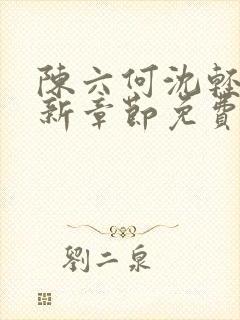 陳六何沈輕
新章節免費
劉二泉